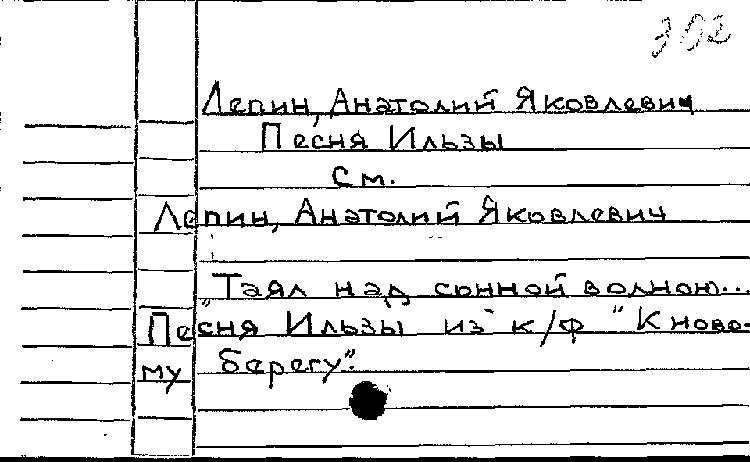 302
Лепин, Анатолий Яковлевич
Песня Ильзы
См.
Лепин, Анатолий Яковлевич
"Таял над сонной волною...
Песня Ильзы из к/ф "К ново-
му берегу".